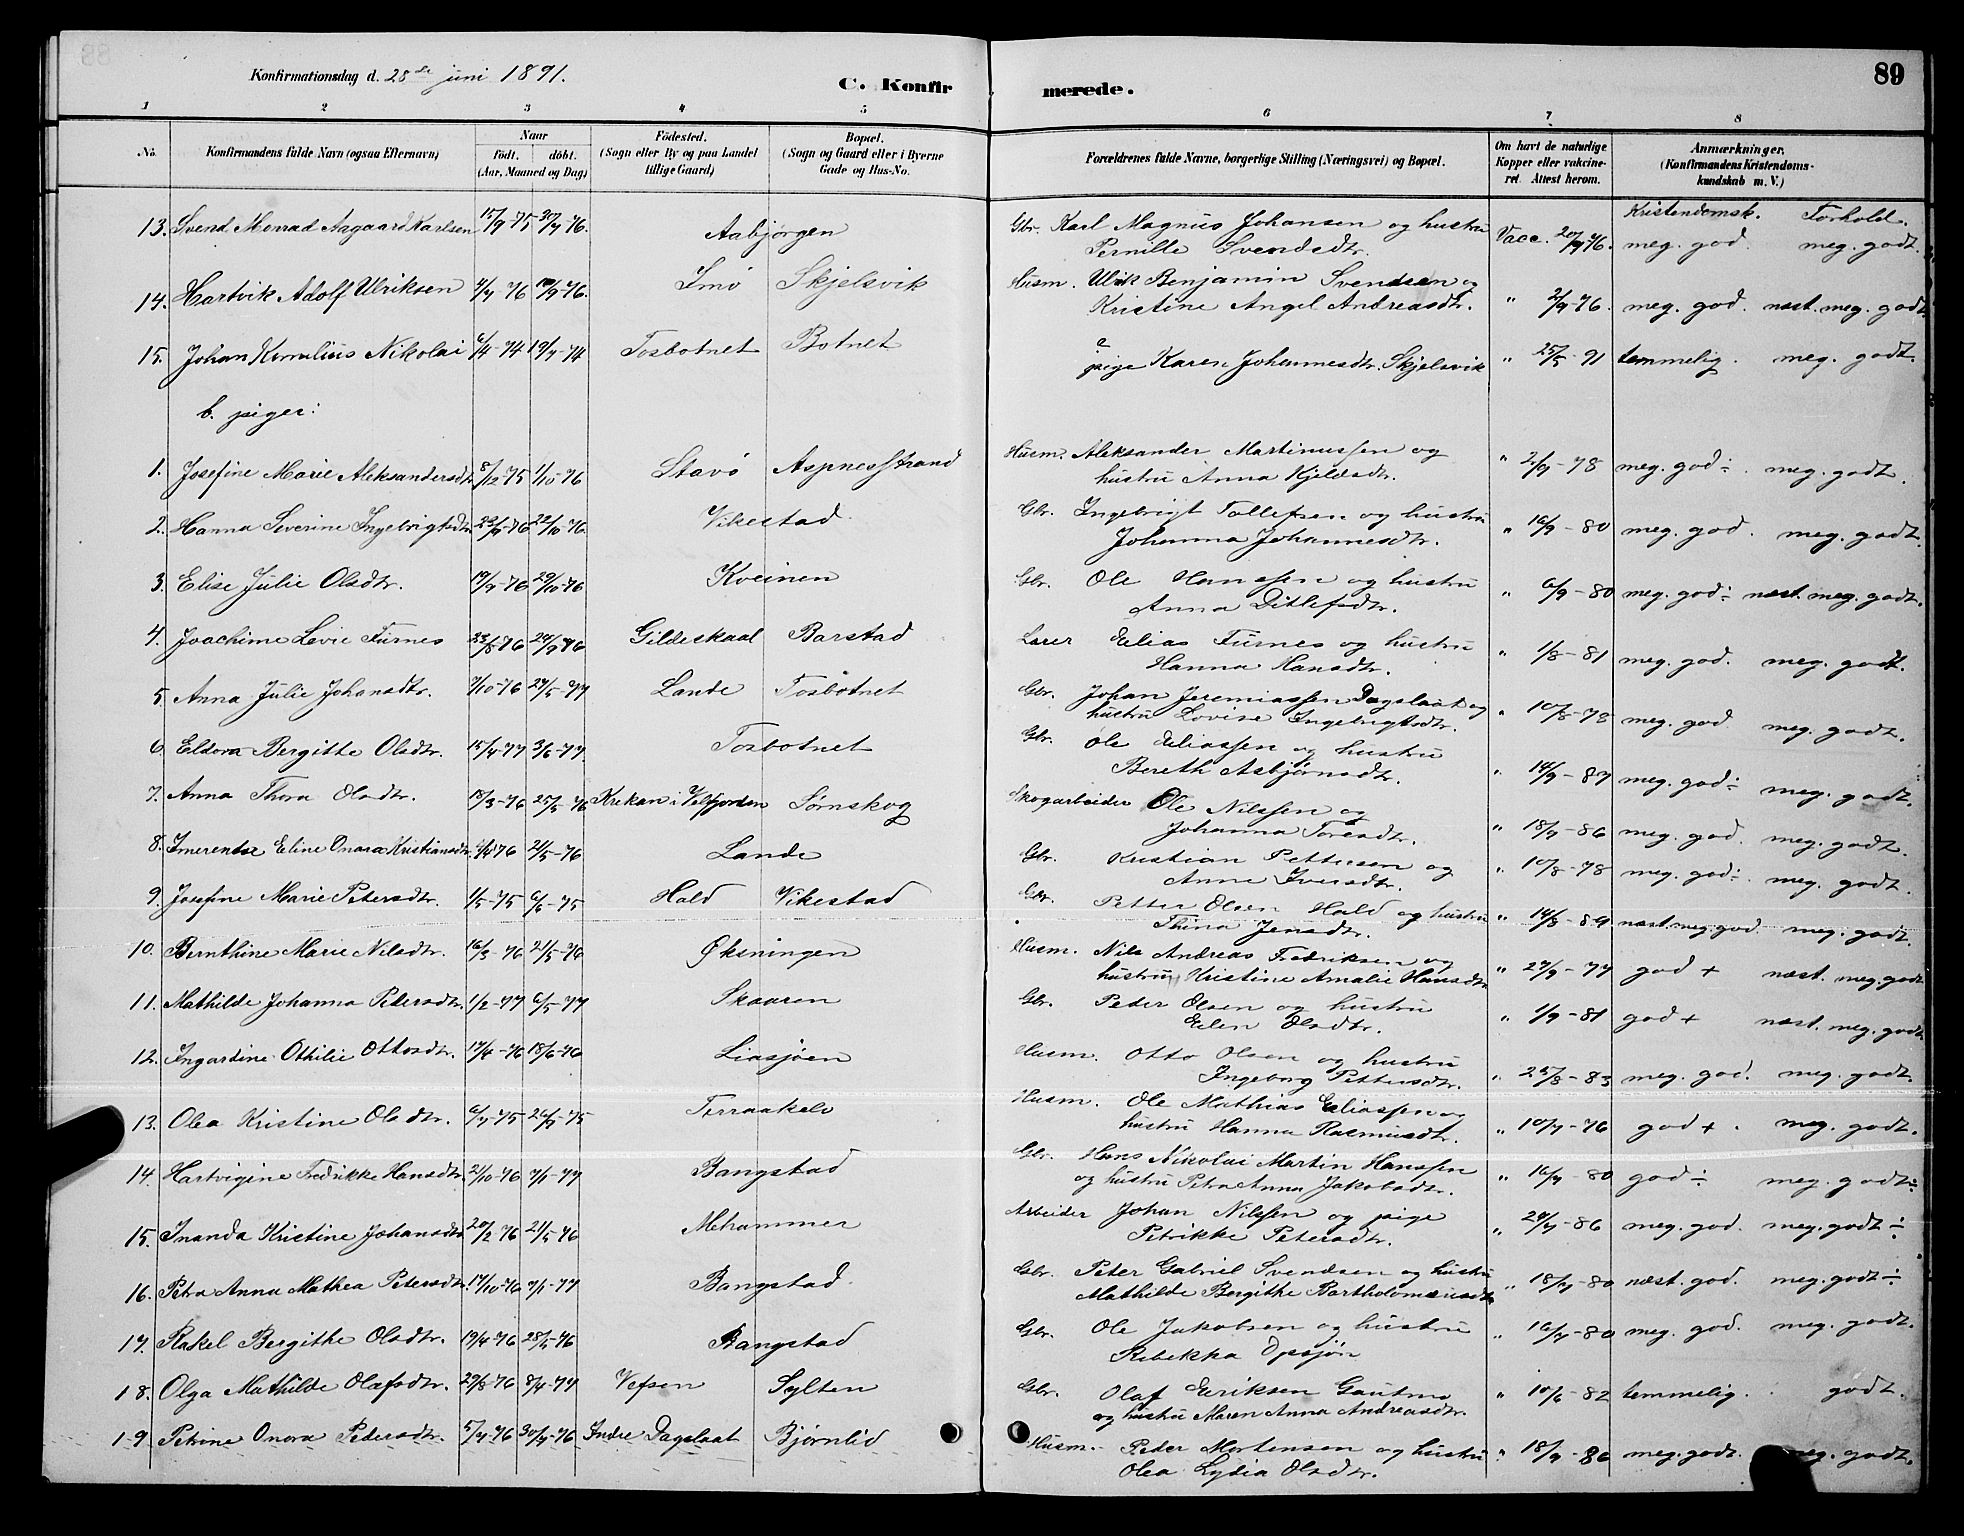 Konfirmationsdag d. 28de juni 1891.
C. Konfirmerede.
89
1 2 3 4 5 6 7 8
No. Konfirmandens fulde Navn (ogsaa Efternavn) Naar födt. döbt. (Aar, Maaned og Dag) Födested. (Sogn eller By og paa Landet tillige Gaard) Bopæl. (Sogn og Gaard eller i Byerne Gade og Hus-No. Forældrenes fulde Navne, borgerlige Stilling (Næringsvei) og Bopæl. Om havt de naturlige Kopper eller vakcineret. Attest herom. Anmærkninger. (Konfirmandens Kristendomskundskab m. V.)
Kristendomsk. Forhold.
13. Svend Monrad Aagaard Karlsen 15/9-75 30/7-76. Aabjørgen Gbr. Karl Magnus Johansen og hustru Pernille Svendsdtr. Vacc. 20/9 76. meg. god. meg. godt.
14. Hartvik Adolf Ulriksen 4/7 76 /9-76. Imø Skjelsvik Husm. Ulrik Benjamin Svendsen og Kristine Angel Andreasdtr. " 2/9-76. meg. god. næst. meg. godt.
15. Johan Kornelius Nikolai 6/4-74 19/7-74 Tosbotnet Botnet pige Karen Johannesdtr. Skjelsvik " 25/5-91 temmelig. meg. godt.
b. piger:
1. Josefine Marie Aleksandersdtr. 8/12-75 1/10-76 Stavø Aspnesstrand Husm. Aleksander Martinussen og hustru Anna Kjeldsdtr. " 2/9-78 meg. god ÷. meg. godt.
2. Hanna Severine Ingebrigtsdtr. 23/9-76 22/10-76. Vikestad Gbr. Ingebrigt Tollefsen og hustru Johanna Johannesdtr. " 16/9-80 meg. god. meg. godt.
3. Elise Julie Olsdtr. 19/9-76 29/10-76 Kveinen Gbr. Ole Hanssen og hustru Anna Ditlefsdtr. " 6/9-80 meg. god ÷ næst. meg. godt.
4. Joachime Levie Furnes 23/8-76 24/9 76 Gildeskaal Barstad Lærer Elias Furnes og hustru Hanna Hansdtr. " 1/8-81 meg. god. meg. godt.
5. Anna Julie Johansdtr. 7/10-76 27/5-77 Lande Tosbotnet Gbr. Johan Jeremiassen Dagslaat og hustru Lovise Ingebrigtsdtr. " 10/8-78 meg. god meg. godt.
6. Eldora Bergitte Olsdtr. 15/4-77 3/6-77. Tosbotnet Gbr. Ole Eliassen og hustru Bereth Asbjørnsdtr. " 14/9-87 meg. god ÷ meg. godt.
7. Anna Thora Olsdtr. 18/3-76 25/5-76 Krekan i Velfjorden Sørnskog Skogarbeider Ole Nilssen og Johanna Toresdtr. " 18/9-86 meg. god. meg. godt.
8. Imerentse Eline Onara Kristiansdtr. /4 76 21/5-76 Lande Gbr. Kristian Pettersen og Anne Iversdtr. " 10/8-78 meg. god ÷. meg. godt.
9. Josefine Marie Petersdtr. 1/5-75 6/6-75 Hald Vikestad Gbr. Petter Olsen Hald og hustru Thina Jensdtr. " 14/8-89 næst. meg. god. meg. godt.
10. Bernthine Marie Nilsdtr. 16/3-76 21/5-76 Øksningen Husm. Nils Andreas Fredriksen og hustru Kristine Amalie Hansdtr " 27/9-77 god + næst. meg. godt
11. Mathilde Johanna Petersdtr. 1/2-77 6/5-77 Skaaren Gbr. Peder Olsen og hustru Elen Olsdtr. " 1/9-81 god + næst. meg. godt
12. Ingardine Othilie Ottosdtr. 17/4-76 18/6-76 Liasjøen Husm. Otto Olsen og hustru Ingeborg Pettersdtr. " 25/8-83 meg. god. meg. godt.
13. Olea Kristine Olsdtr. 6/7-75 26/9-75 Terraakelv Husm. Ole Mathias Eliassen og hustru Hanna Rasmusdtr. " 10/7-76 god +. meg. godt.
14. Hartvigine Fredrikke Hansdtr. 21/10-76 7/1-77 Bangstad Gbr. Hans Nikolai Martin Hanssen og hustru Petra Anna Jakobsdtr. " 16/7-80 god ÷ meg. godt ÷
15. Inanda Kristine Johansdtr 20/2 76 21/5-76 Mehammer Arbeider Johan Nilssen og pige Petrikke Petersdtr. " 24/7-86 meg. god. meg. godt ÷
16. Petra Anna Mathea Petersdtr. 17/10-76 7/1-77 Bangstad. Gbr. Peter Gabriel Svendsen og hustru Mathilde Bergithe Bartholomæusdtr " 18/7-80 næst. god. meg. godt ÷
17. Rakel Bergithe Olsdtr. 19/4-76 28/5-76 Bangstad Gbr. Ole Jakobsen og hustru Rebekka Opsjön " 16/7-80 meg. god. meg. godt.
18. Olga Mathilde Olafsdtr. 29/8-76 8/4-77 Vefsen Sylten Gbr. Olaf Eriksen Gautmo og hustru Maren Anna Andreasdtr. " 10/6-82 temmelig. godt.
19 Petrine Onora Pedersdtr. 5/7-76 30/7-76 Indre Dagslaat Bjørnlid Husm. Peder Mortensen og hustru Olea Lydia Olsdtr. " 18/9-86 meg. godt. meg. godt.